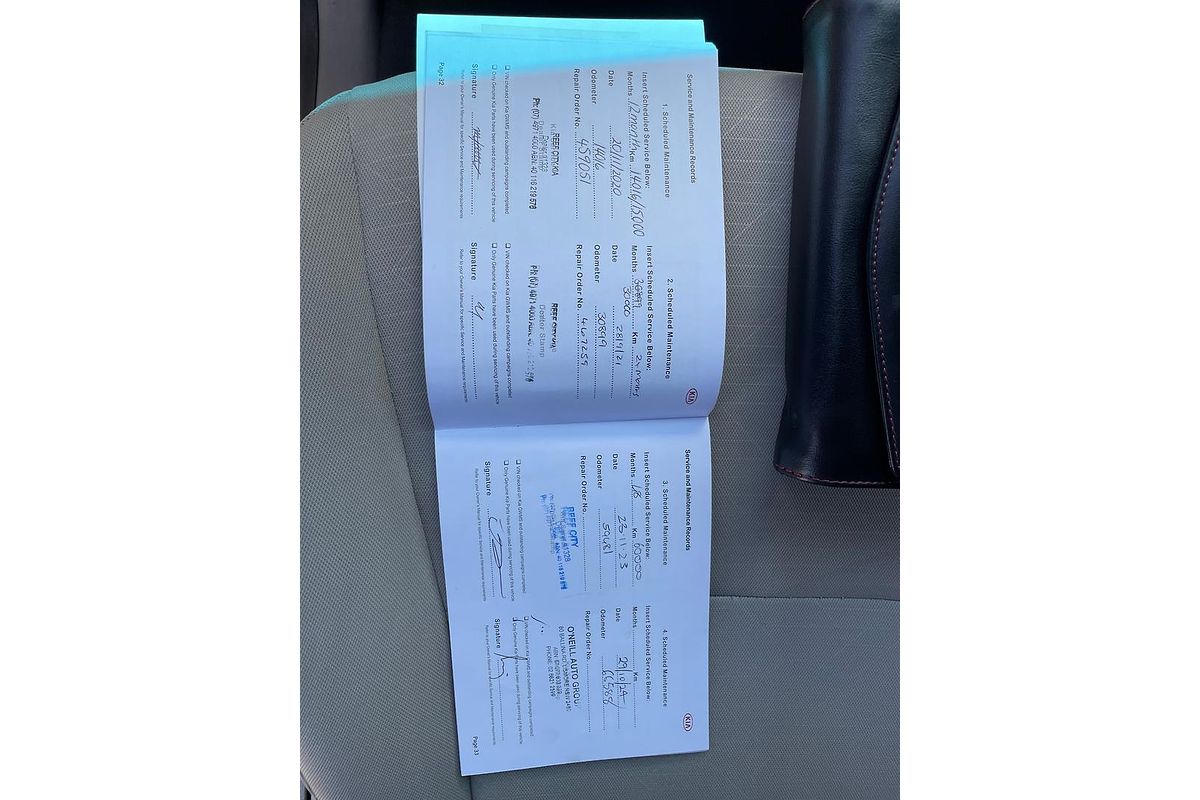 Service and Maintenance Records
1. Scheduled Maintenance
Insert Scheduled Service Below:
Months 12 month Km 14016/15,000
Date 20/11/2020
Odometer 14016
Repair Order No. 459051
REEF CITY KIA
Ph: (07) 4971 4000 ABN: 40 110 219 578
❑ VIN checked on Kia GWMS and outstanding campaigns completed
❑ Only Genuine Kia Parts have been used during servicing of this vehicle
Signature
Refer to your Owner's Manual for specific Service and Maintenance requirements
Page 32
2. Scheduled Maintenance
KIA
Insert Scheduled Service Below:
Months 30000 Km 24 Months
Date 28/9/21
Odometer 30899
Repair Order No. 467259
Dealer Stamp
Ph: (07) 4971 4000
❑ VIN checked on Kia GWMS and outstanding campaigns completed
❑ Only Genuine Kia Parts have been used during servicing of this vehicle
Signature
Refer to your Owner's Manual for specific Service and Maintenance requirements
Service and Maintenance Records
3. Scheduled Maintenance
Insert Scheduled Service Below:
Months Km 60000
Date 23.11.23
Odometer 59681
Repair Order No.
REEF CITY
❑ VIN checked on Kia GWMS and outstanding campaigns completed
❑ Only Genuine Kia Parts have been used during servicing of this vehicle
Signature
Refer to your Owner's Manual for specific Service and Maintenance requirements
4. Scheduled Maintenance
KIA
Insert Scheduled Service Below:
Months Km
Date 29/10/24
Odometer 66586
Repair Order No.
O'NEILL AUTO GROUP
PHONE: 02 6621 2199
❑ VIN checked on Kia GWMS and outstanding campaigns completed
❑ Only Genuine Kia Parts have been used during servicing of this vehicle
Signature
Refer to your Owner's Manual for specific Service and Maintenance requirements
Page 33